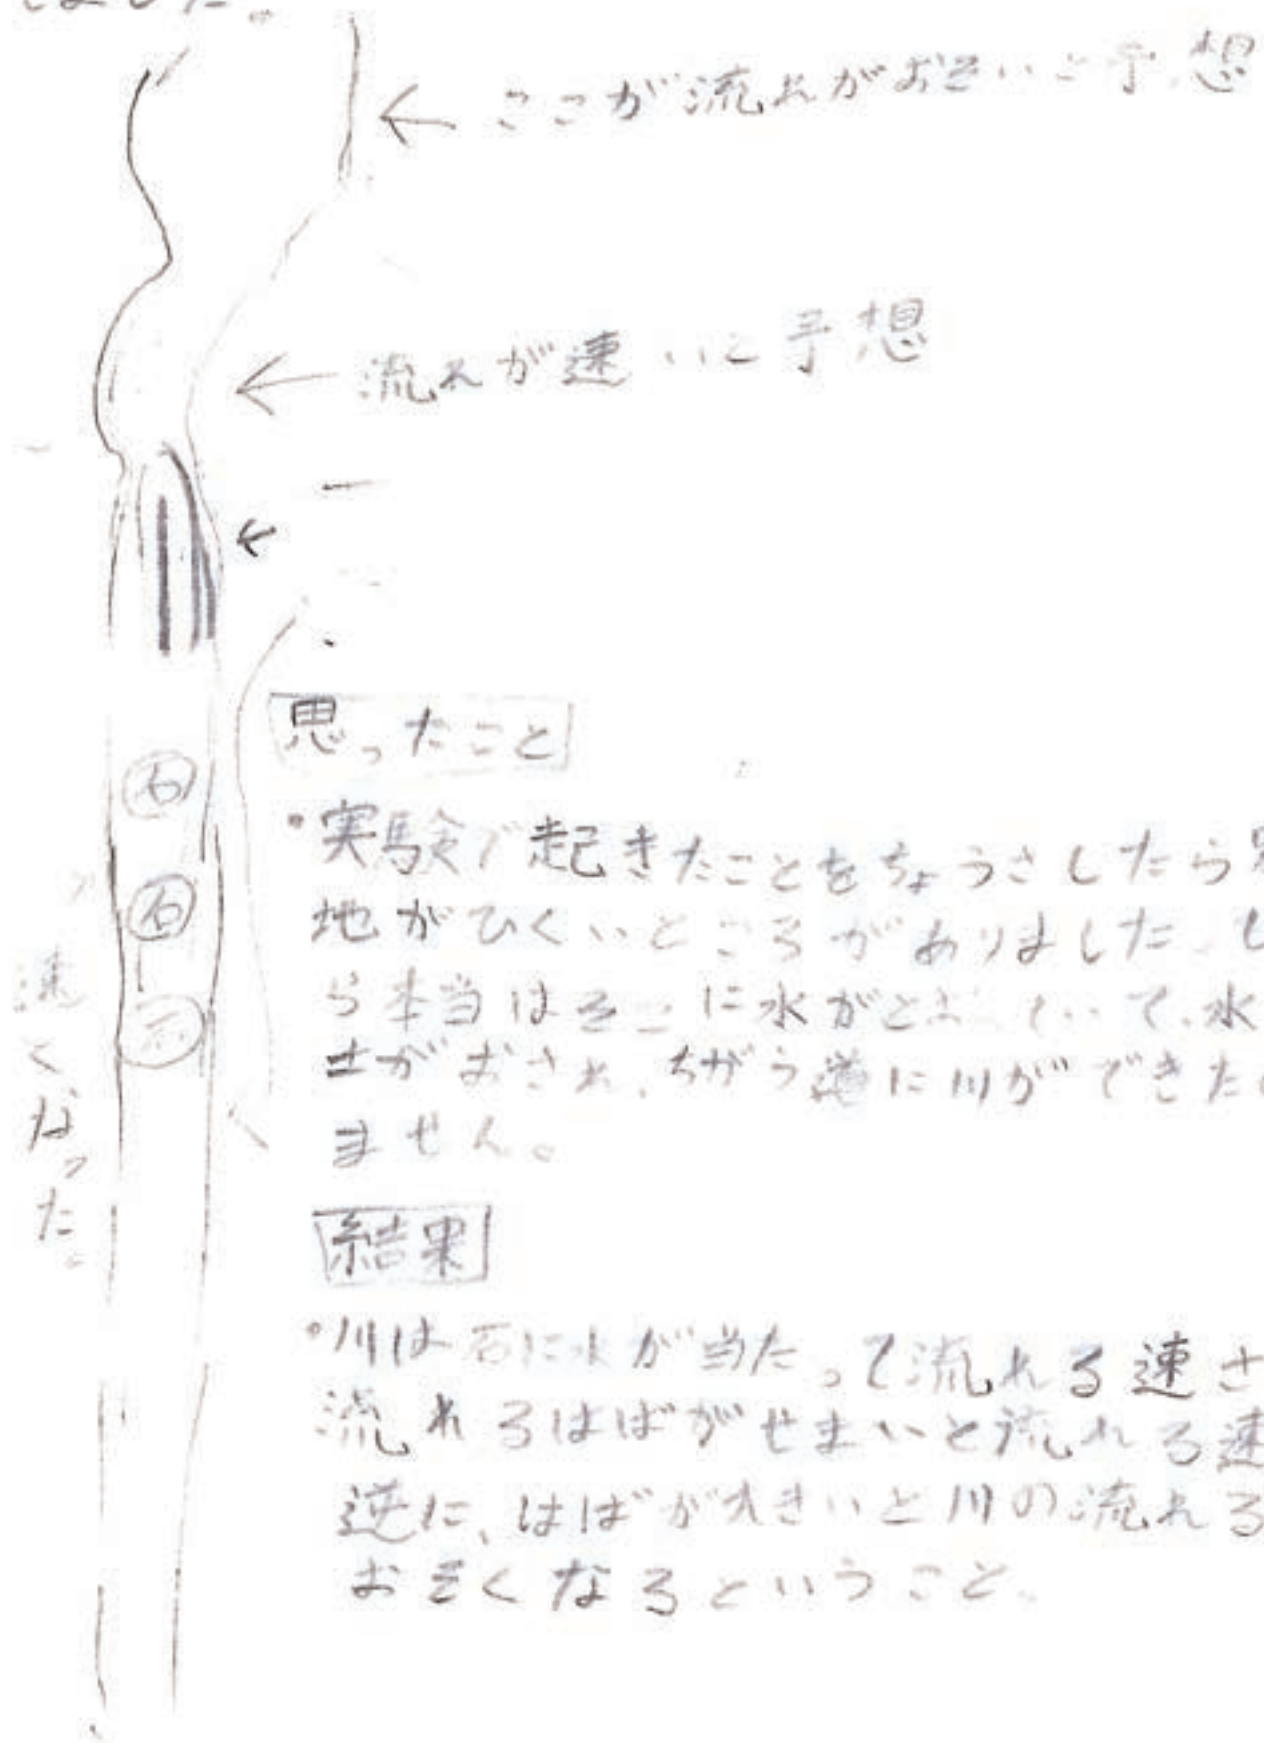 ました。
ここが流れがおそいと予想
流れが速いと予想
思ったこと
石
・実験で起きたことをちょうさしたら
石
地がひくいところがありました。し
ら本当はそこに水がとおっていて、水
石
土がおされ、ちがう道に川ができた
ません。
速くなった。
結果
・川は石に水が当たって流れる速さ
流れるはばがせまいと流れる速
逆に、はばが大きいと川の流れる
おそくなるということ。